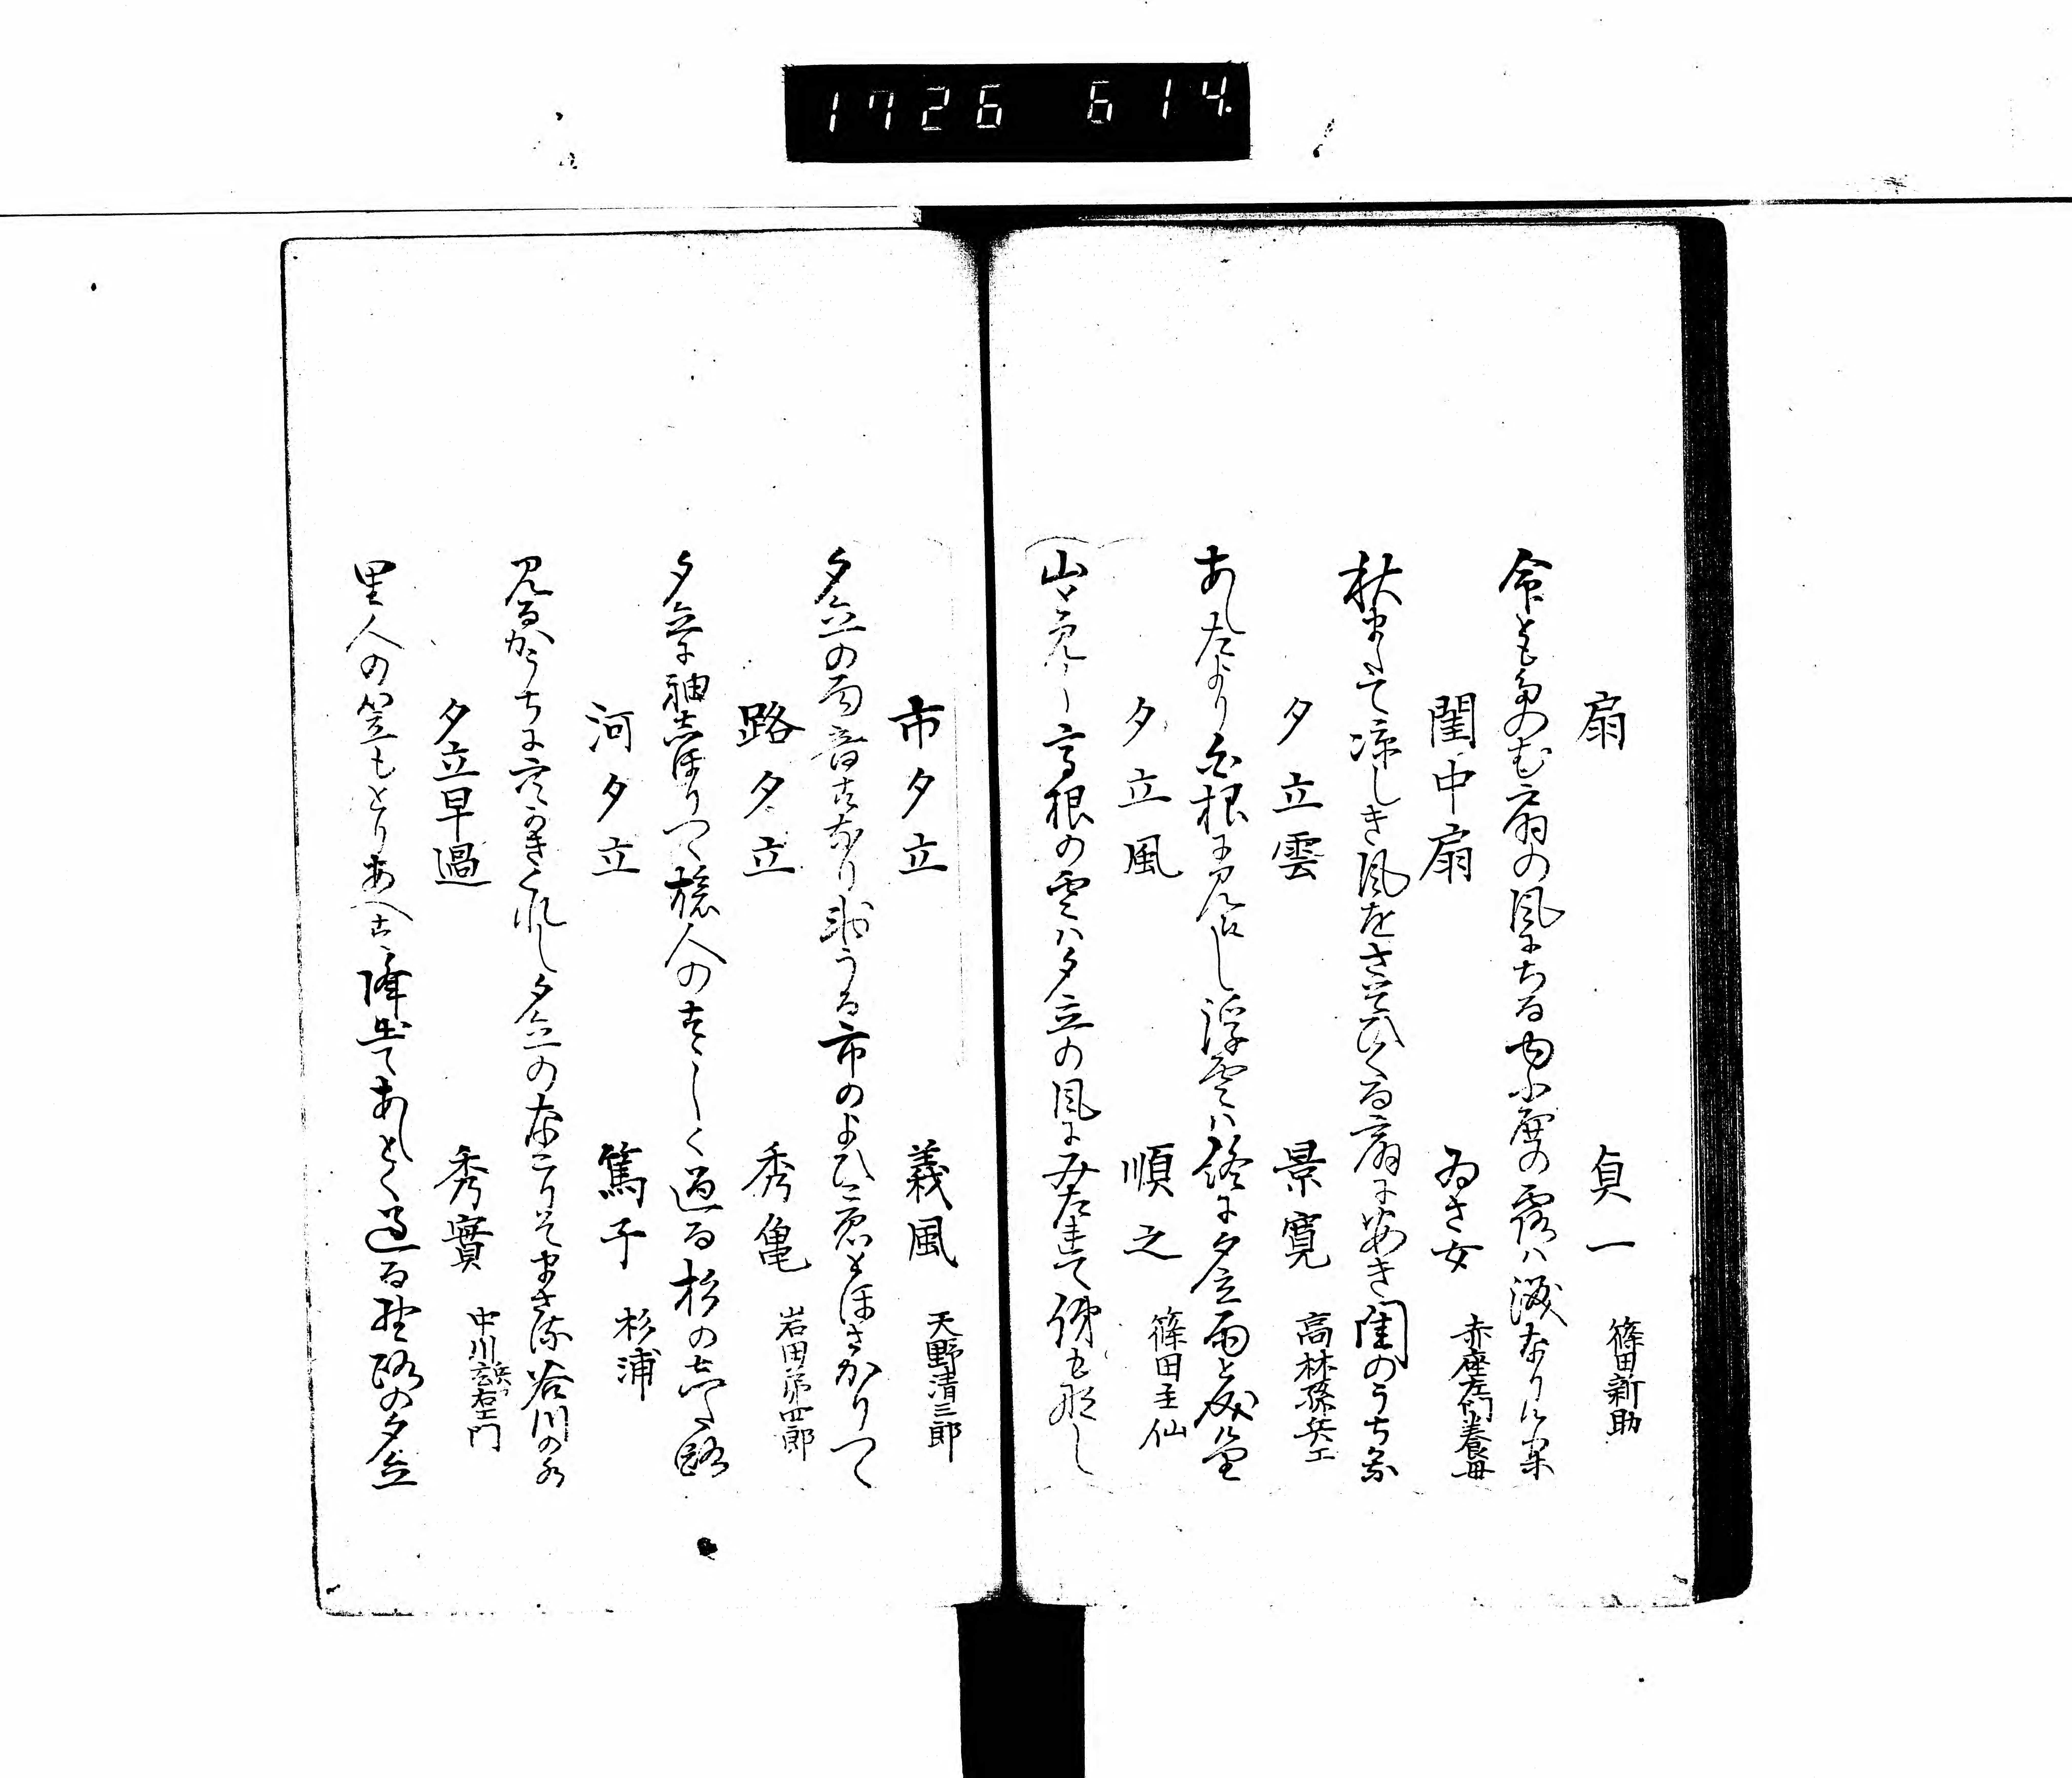 1726 614
扇 貞一 篠田新助
扇の風にちる
閨中扇 ゐさ女 赤座左衛門養母
秋またて涼しき風をさそひくる扇にあき閨のうちかな
夕立雲 景寛 高林孫兵エ
あたより白根に見えし浮雲ハ終に夕立雨と成に
夕立風 順之 篠田圭仙
山々見えし高根の雲ハ夕立の風にみたれて跡も那し
市夕立 義風 天野清三郎
夕立の雨音すなり うる市のよひこゑとほさかりつゝ
路夕立 秀亀 岩田第四郎
夕立に袖しほりつゝ旅人のすゝしく過る杉のした路
河夕立 篤子 杉浦
見るかうちに かきくれし夕立のなこりそまさる谷川の水
夕立早過 秀實 中川 右エ門
里人の笠もとりあへす降出てあしとく過る野路の夕立